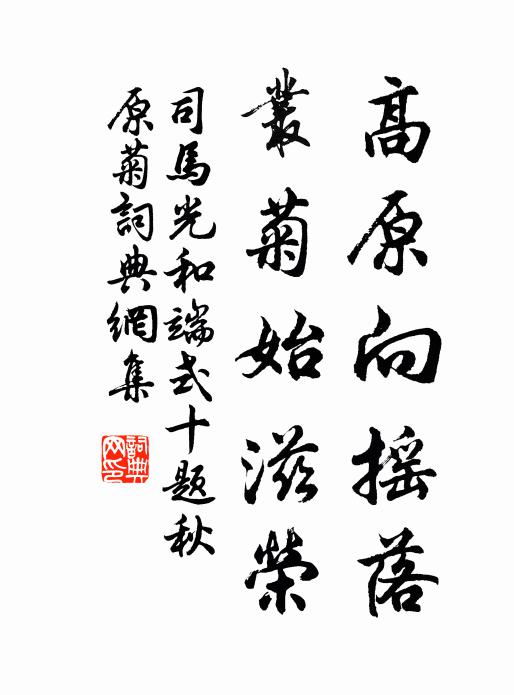 高原向摇落
叢菊始滋榮
司馬光和端式十題秋
原菊詞典網集
詞典
网印